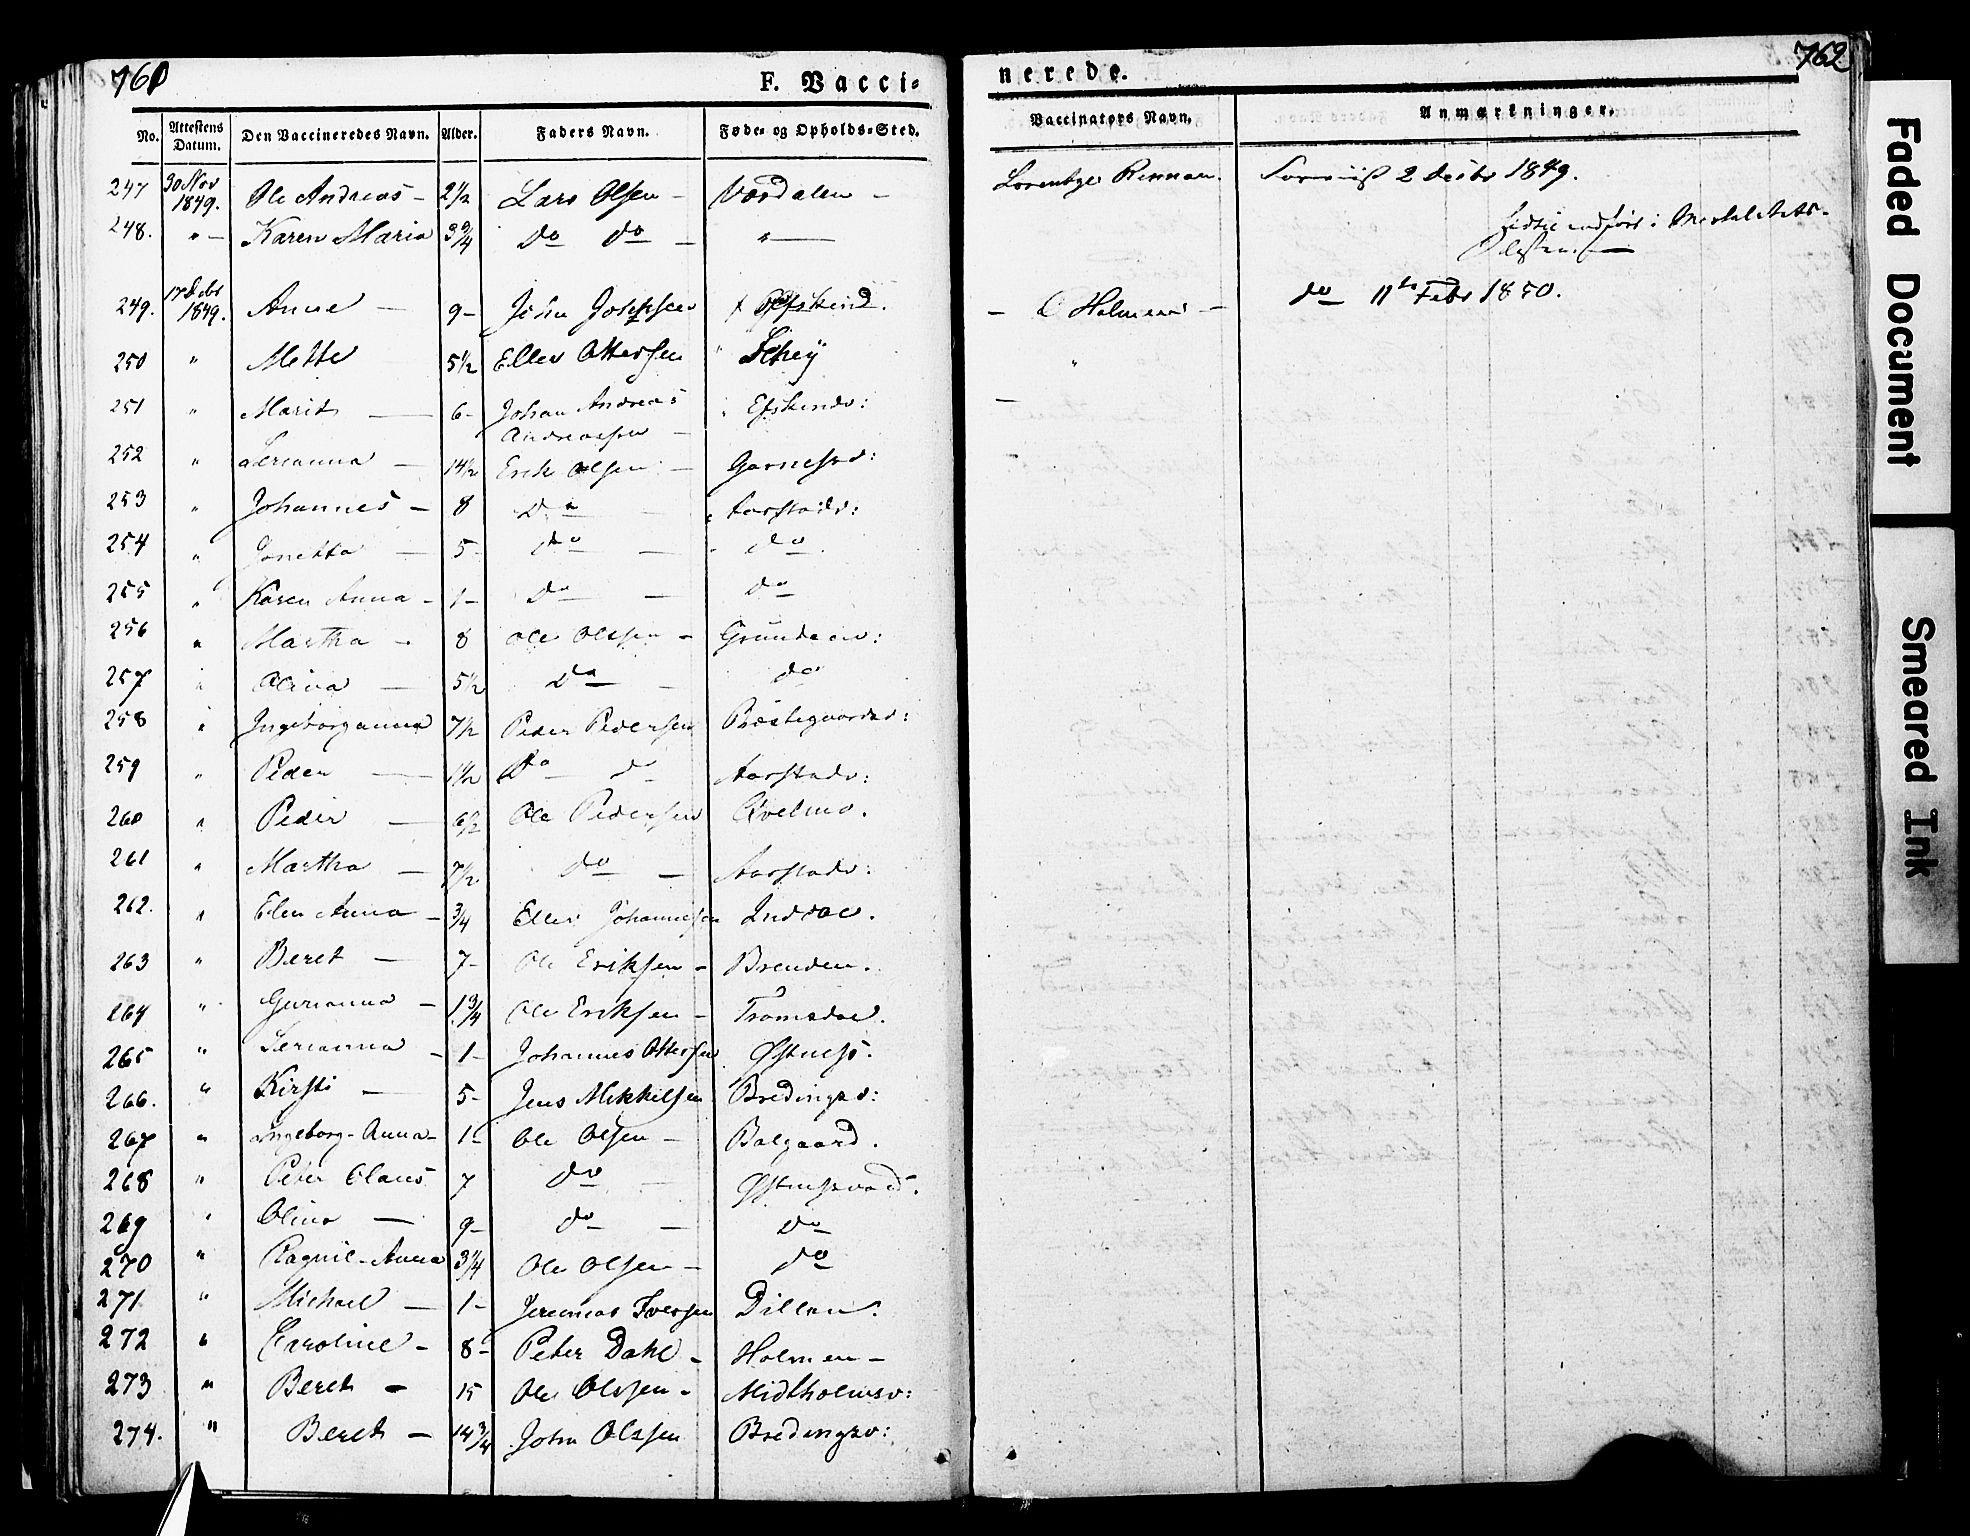 761 F. Vacci-
nerede. 762
No. Attestens Datum. Den Vaccineredes Navn. Alder. Faders Navn. Føde- og Opholds-Sted.
Vaccinators Navn. Anmærkninger.
247 30 Nov 1849. Ole Andreas - 2 1/2 Lars Olsen - Værdalen -
248. " - Karen Maria 3 3/4 do do - "
2 Decbr 1849.
249. 17 Decbr 1849. Anne - 9 - John
- Holmen - do 11te Febr 1850.
250 " Mette 5 1/2 Ellev Ottersen "
251 " Marit - 6 - Johan Andreas
Andreassen -
252 " Serianna - 14 1/2 Erik Olsen - Garnesvd:
253 " Johannes - 8 Do - Aarstadv:
254 " Jonetta - 5 - do - do
255 " Karen Anna - 1 - Do - do
256 " Martha - 8 Ole Olssen -
257 " Olina - 5 1/2 Do - do
258 " Ingeborganna 7 1/2 Peder Pedersen
259 " Peder - 1 1/2 Do do Aarstadv:
260 " Peder - Ole Pedersen Qvelmo.
261 " Martha - 7 1/2 do - Aarstadv:
262. " Elen Anna - 3/4 Ellev Johannesen Inddal.
263 " Beret - 7 - Ole Eriksen - Brenden.
264 " Gurianna - 1 3/4 Ole Eriksen - Tromsdal.
265 " Serianna - 1 - Johannes Ottersen Østness.
266. " Kirsti - 5 - Jens Mikkelsen Bredingsv:
267 " Ingeborg-Anna - 1 - Ole Olsen - Balgaard.
268 " Peter Olaus 7 do -
269 " Olina - 9 - do - do
270 " Ragnil-Anna 3 1/4 Ole Olsen - do
271 " Michael - 1 - Jeremias Iversen Dillan.
272 " Caroline - 8 - Peter Dahl - Holmen -
273 " Beret - 15 Ole Olssen - Midtholmsv:
274. " Beret - 14 3/4 John Olssen Bredingsv:
Faded Document
Smeared Ink